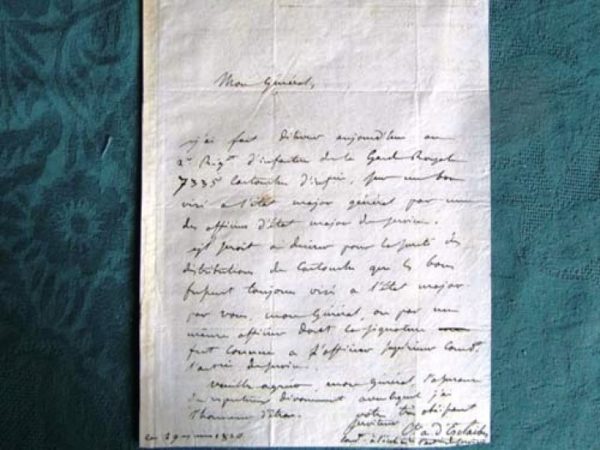 Mon Général,
j'ai fait délivrer aujourd'hui au
2e Régt d'infanterie de la Garde Royale
7335 Cartouches d'infie, sur un bon
visé a l'état major général par un
des officiers d'état major de service.
il serait a désirer pour la sureté des
distributions de Cartouches que les bons
fussent toujours visés a l'état major
par vous, mon Général, ou par un
même officier dont la signature
fut connue a l'officier supérieur Comdt
l'artie de service.
veuillez agréer, mon Général, l'assurance
du respectueux dévouement avec lequel j'ai
l'honneur d'être votre très obéissant
serviteur
d'Esclaibes
1830